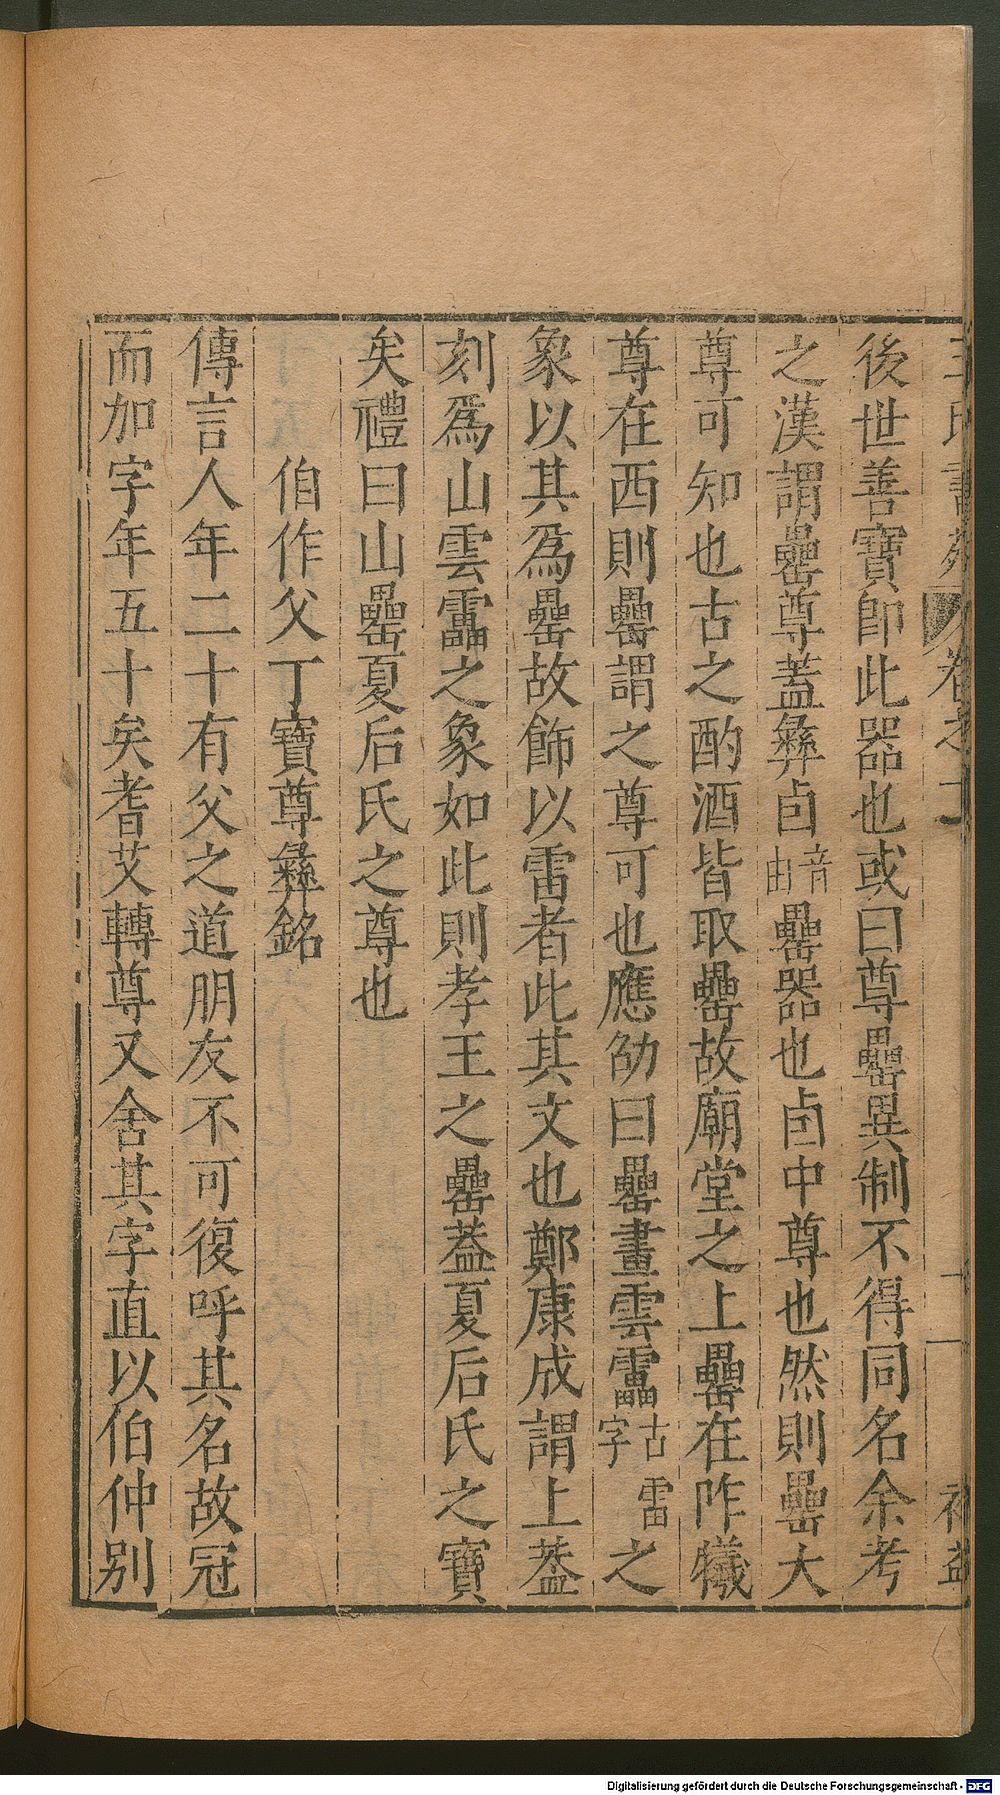 王氏書苑 卷之
後世善寶即此器也或曰尊罍異制不得同名余考
之漢謂罍尊蓋彝卣音由罍器也卣中尊也然則罍大
尊可知也古之酌酒皆取罍故廟堂之上罍在阼犧
尊在西則罍謂之尊可也應劭曰罍畫雲靁古雷字之
象以其爲罍故飾以雷者此其文也鄭康成謂上葢
刻爲山雲靁之象如此則孝王之罍葢夏后氏之寶
矣禮曰山罍夏后氏之尊也
伯作父丁寶尊彝銘
傳言人年二十有父之道朋友不可復呼其名故冠
而加字年五十矣耆艾轉尊又舍其字直以伯仲別
Digitalisierung gefördert durch die Deutsche Forschungsgemeinschaft - DFG